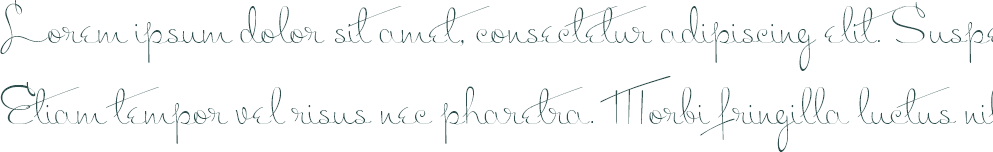 Lorem ipsum dolor sit amet, consectetur adipiscing elit. Suspe
Etiam tempor vel risus nec pharetra. Morbi fringilla luctus ni